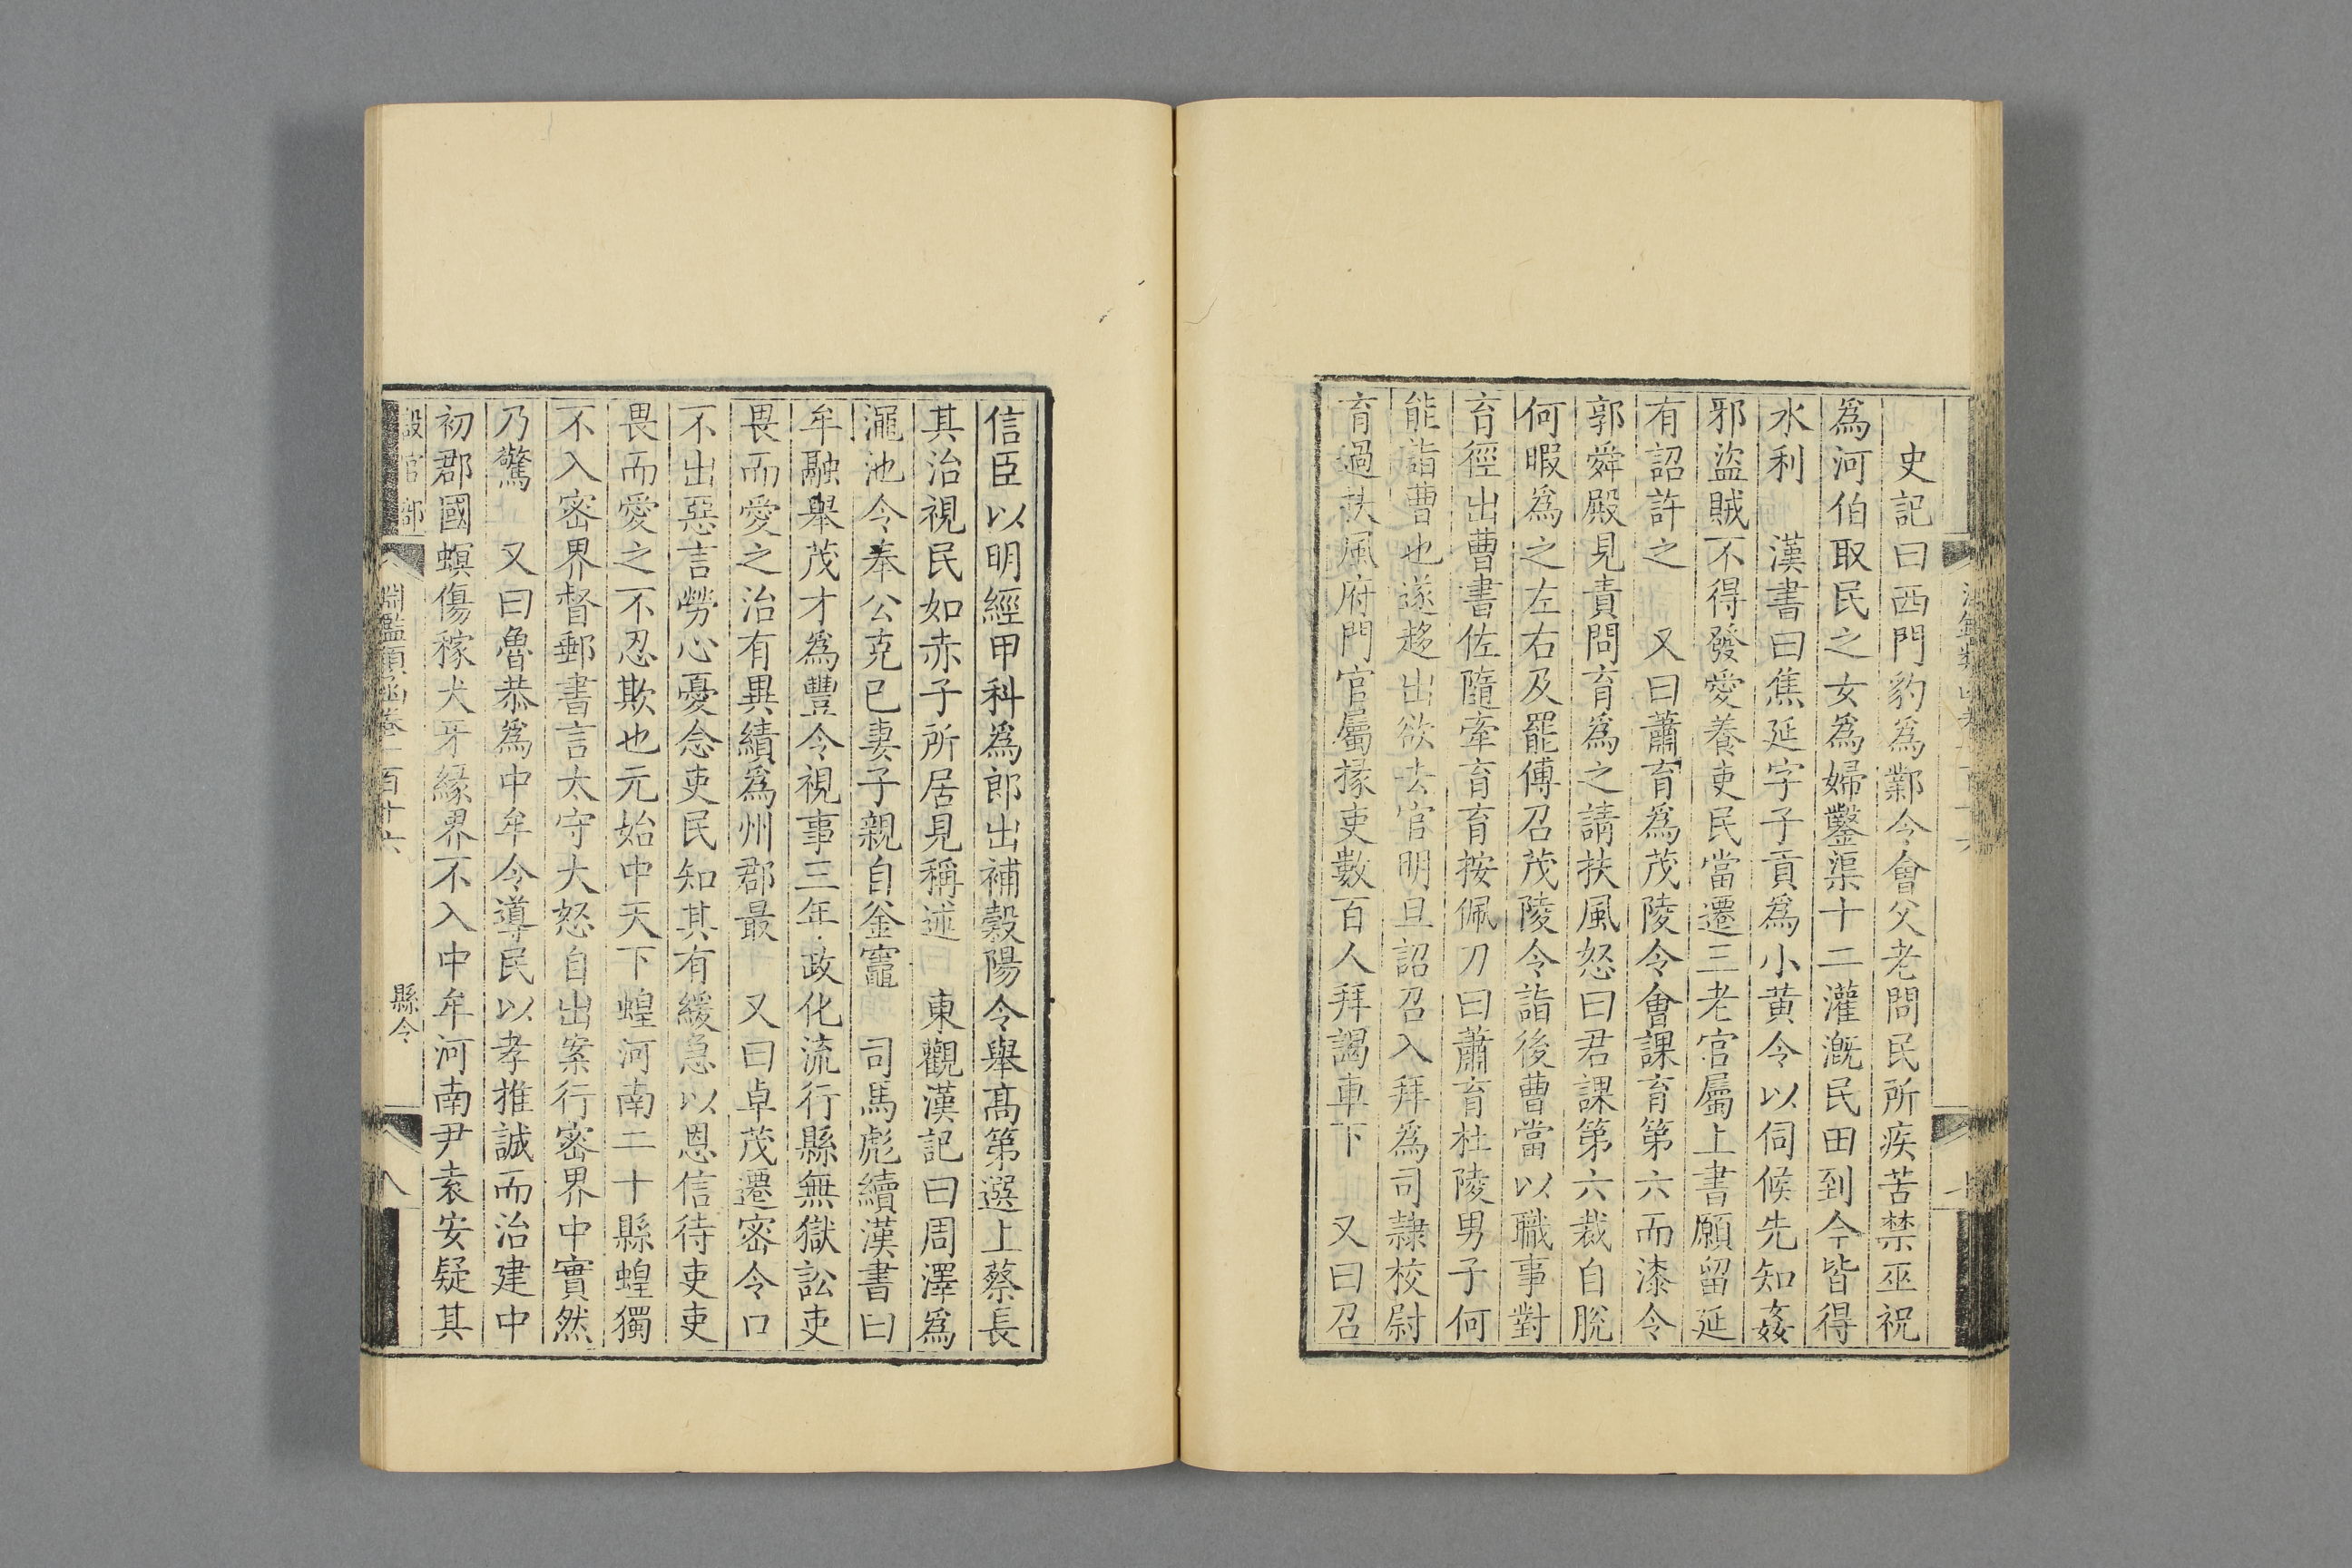 史記曰西門豹爲鄴令會父老問民所疾苦禁巫祝
爲河伯取民之女爲婦鑿渠十二灌漑民田到今皆得
水利　漢書曰焦延字子貢爲小黄令以伺候先知姦
邪盜賊不得發愛養吏民當遷三老官屬上書願留延
有詔許之　又曰蕭育爲茂陵令會課育第六而漆令
郭舜殿見責問育爲之請扶風怒曰君課第六裁自脫
何暇爲之左右及罷傳召茂陵令詣後曹當以職事對
育徑出曹書佐隨牽育育按佩刀曰蕭育杜陵男子何
能詣曹也遂趍出欲去官明旦詔召入拜爲司隸校尉
育過扶風府門官屬掾吏數百人拜謁車下　又曰召
信臣以明經甲科爲郎出補穀陽令舉髙第遷上蔡長
其治視民如赤子所居見稱述　東觀漢記曰周澤爲
澠池令奉公克己妻子親自釜竈　司馬彪續漢書曰
牟融舉茂才爲豐令視事三年政化流行縣無獄訟吏
畏而愛之治有異績爲州郡最　又曰卓茂遷密令口
不出惡言勞心憂念吏民知其有緩急以恩信待吏吏
畏而愛之不忍欺也元始中天下蝗河南二十縣蝗獨
不入密界督郵書言太守大怒自出案行密界中實然
乃驚　又曰魯恭爲中牟令導民以孝推誠而治建中
初郡國螟傷稼犬牙緣界不入中牟河南尹袁安疑其
設官部
淵鑑類函卷一百十六
縣令
八